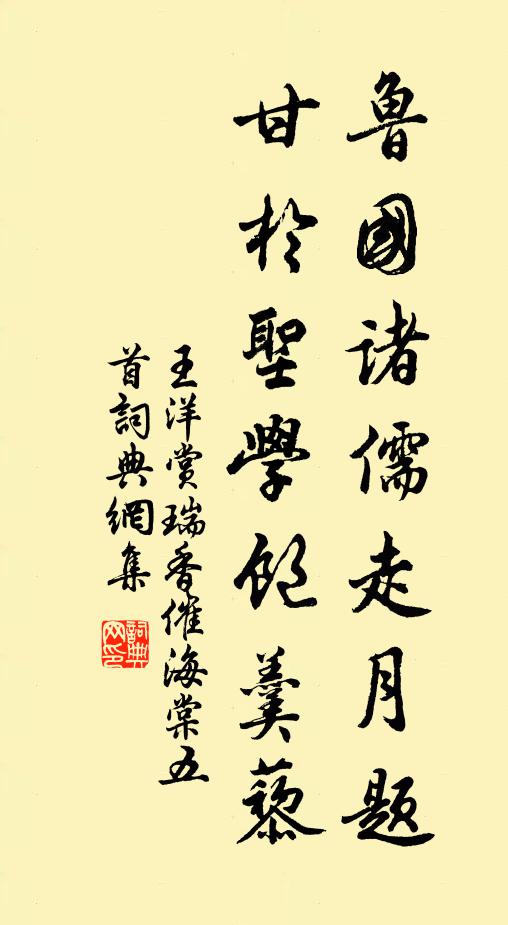 魯國諸儒走月題
甘於聖學飽羹藜
王洋賞瑞香催海棠五
首詞典網集
詞典網印